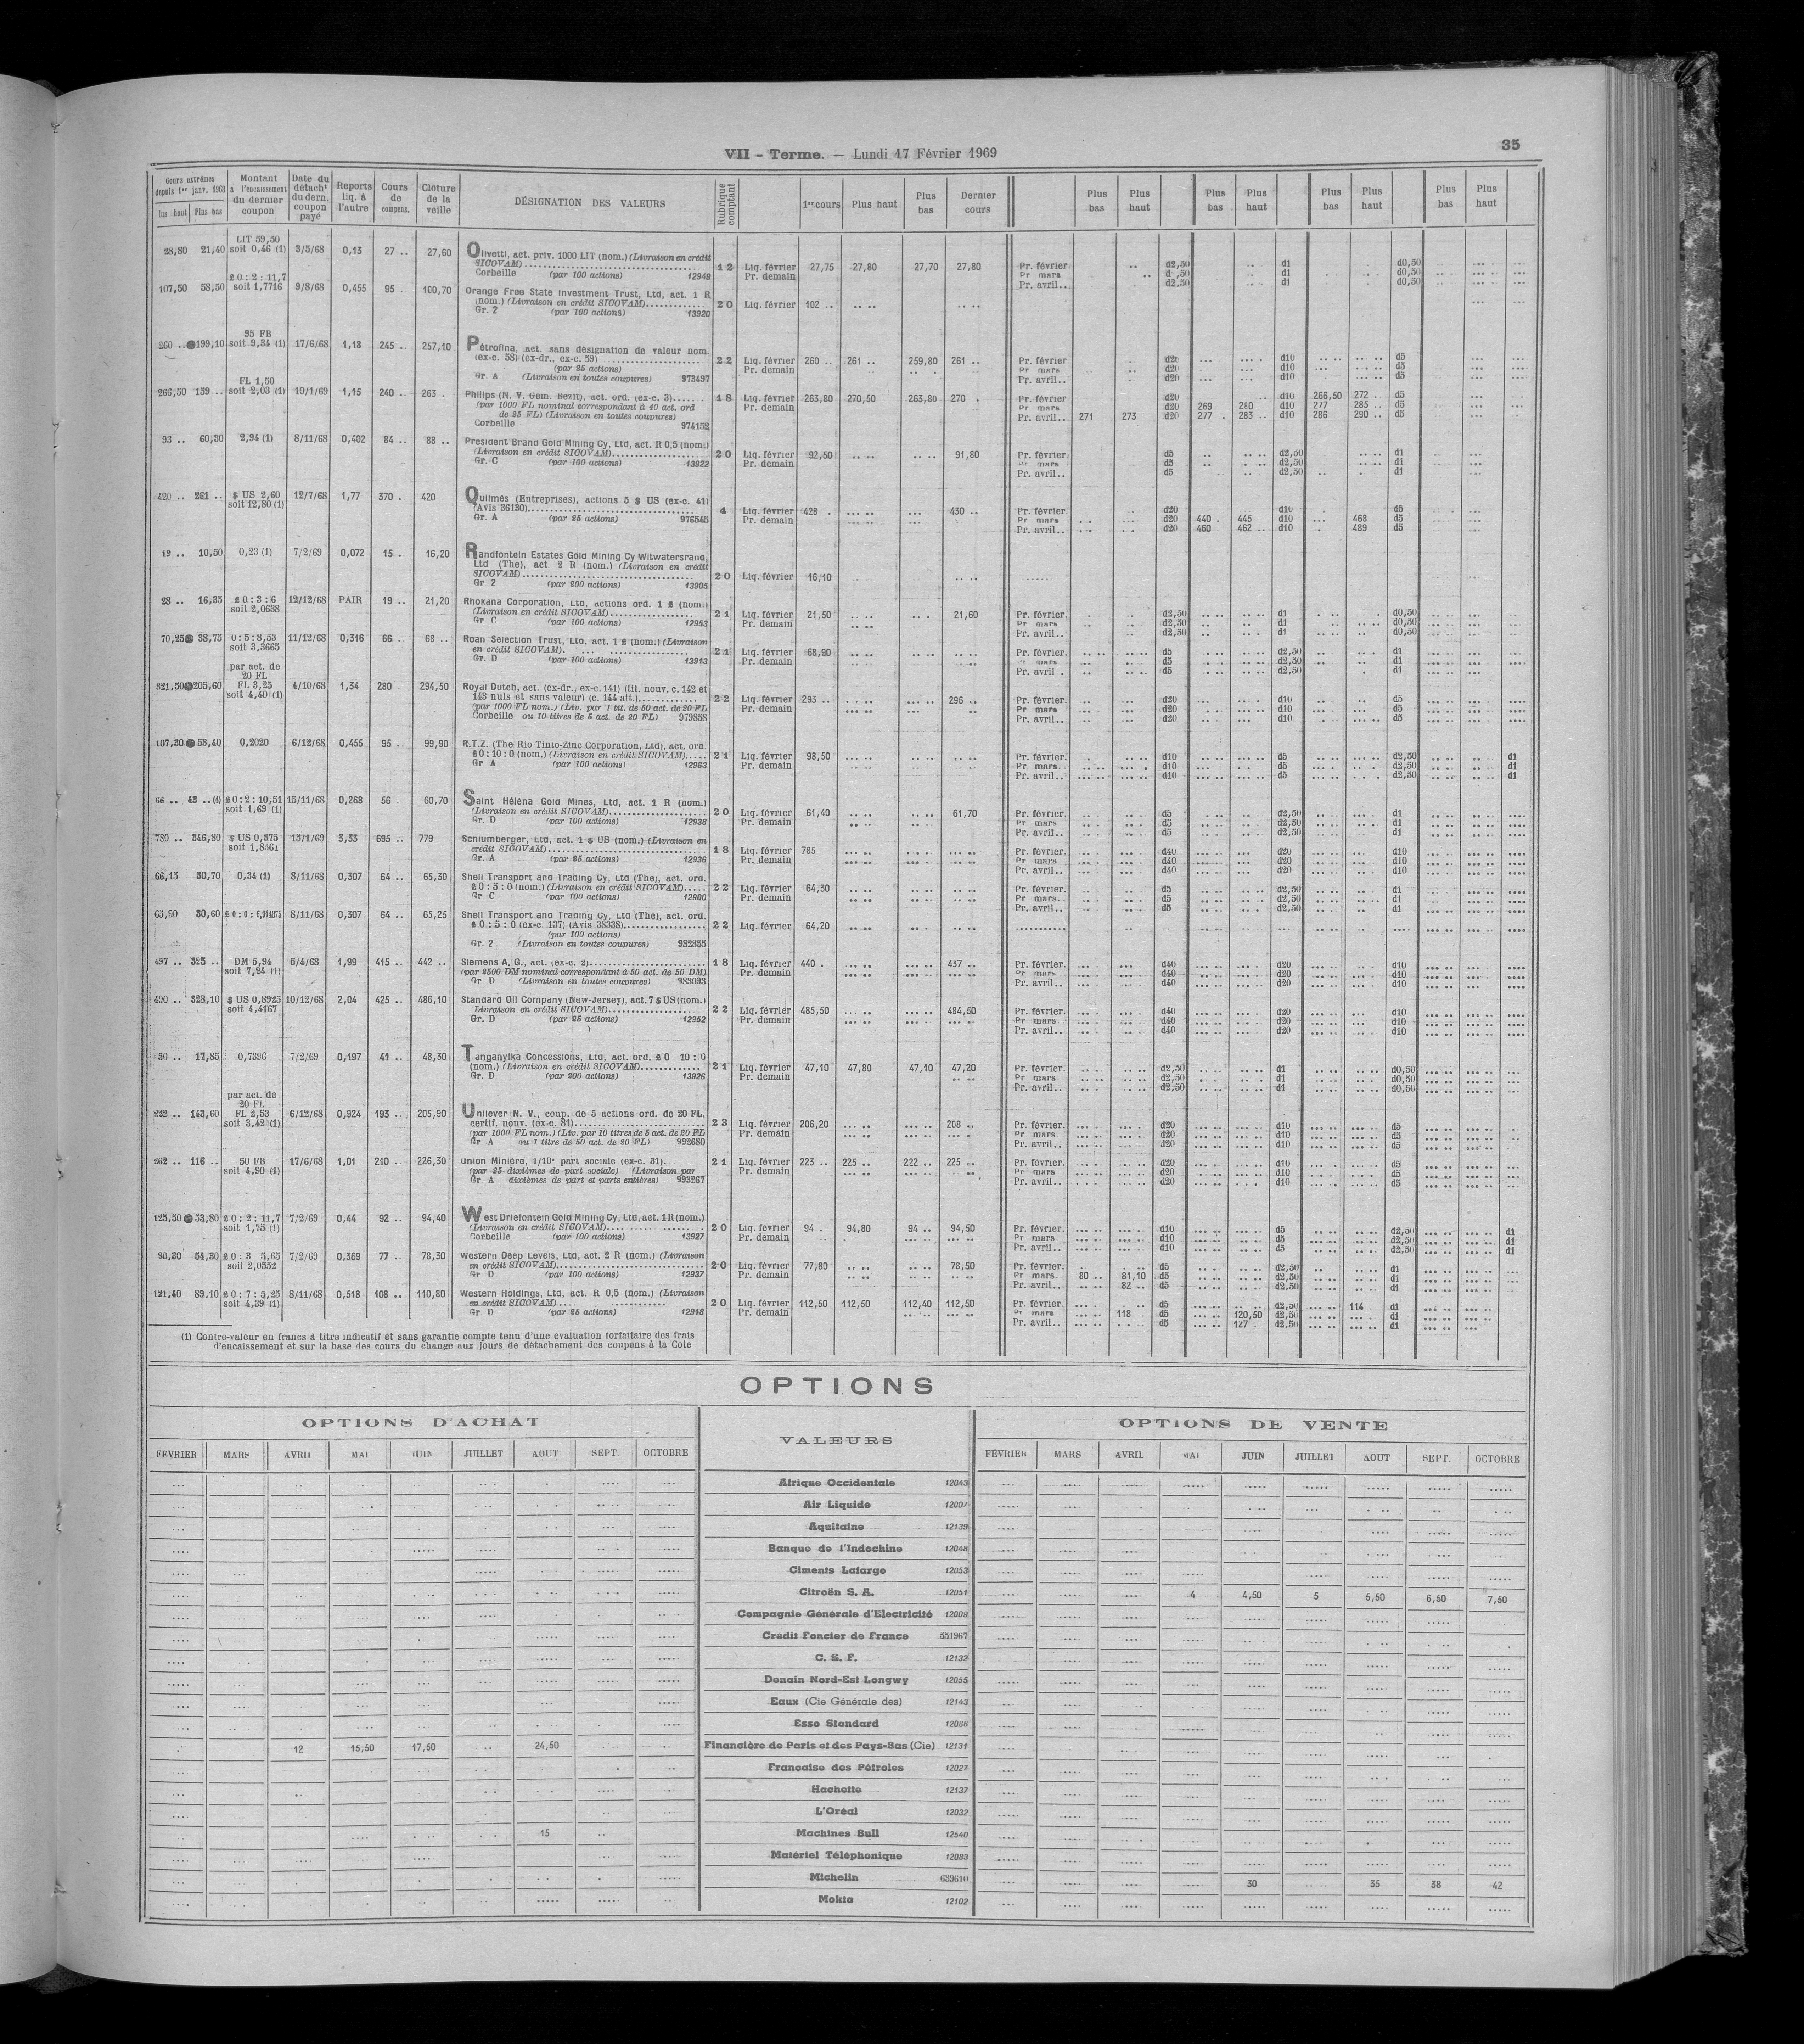 VII - Terme. — Lundi 17 Février 1969
35
Cours extrêmes depuis 1er janv. 1968 Plus bas
Montant à l'encaissement du dernier coupon
Date du détacht du dern. coupon payé
Reports liq. à l'autre
Cours de compens.
Clôture de la veille
DÉSIGNATION DES VALEURS
Rubrique comptant
1er cours Plus haut Plus bas Dernier cours
Plus bas Plus haut Plus bas Plus haut Plus bas Plus haut Plus bas Plus haut
LIT 59,50
28,80 21,40 soit 0,46 (1) 3/5/68 0,13 27 .. 27,60 Olivetti, act. priv. 1000 LIT (nom.) (Livraison en crédit
SICOVAM)
Corbeille (par 100 actions) 12948
12 Liq. février 27,75 27,80 27,70 27,80 Pr. février d2,50 d1 d0,50
Pr. demain Pr. mars d1 d0,50
Pr. avril.. d2,50 d1 d0,50
£ 0 : 2 : 11,7
107,50 58,50 soit 1,7716 9/8/68 0,455 95 . 100,70 Orange Free State Investment Trust, Ltd, act. 1 R
(nom.) (Livraison en crédit SICOVAM)
Gr. 2 (par 100 actions) 13920
20 Liq. février 102 ..
95 FB
260 .. 199,10 soit 9,34 (1) 17/6/68 1,18 245 .. 257,10 Pétrofina, act. sans désignation de valeur nom.
(ex-c. 58) (ex-dr., ex-c. 59)
(par 25 actions)
Gr. A (Livraison en toutes coupures) 973497
22 Liq. février 260 .. 261 .. 259,80 261 .. Pr. février d20 d10 d5
Pr. demain Pr. mars d20 d10 d5
Pr. avril.. d20 d10 d5
FL 1,50
266,50 139 .. soit 2,03 (1) 10/1/69 1,15 240 .. 263 . Philips (N. V. Gem. Bezit), act. ord. (ex-c. 3)
(par 1000 FL nominal correspondant à 40 act. ord
de 25 FL) (Livraison en toutes coupures)
Corbeille 974152
18 Liq. février 263,80 270,50 263,80 270 . Pr. février d20 d10 266,50 272 .. d5
Pr. demain Pr. mars d20 269 280 d10 277 285 .. d5
Pr. avril.. 271 273 d20 277 . 283 .. d10 286 290 .. d5
93 .. 60,30 2,94 (1) 8/11/68 0,402 84 .. 88 .. President Brand Gold Mining Cy, Ltd, act. R 0,5 (nom.)
(Livraison en crédit SICOVAM)
Gr. C (par 100 actions) 13922
20 Liq. février 92,50 91,80 Pr. février d5 d2,50 d1
Pr. demain Pr. mars d5 d2,50 d1
Pr. avril.. d5 d2,50 d1
420 .. 261 .. $ US 2,60 12/7/68 1,77 370 . 420 Quilmès (Entreprises), actions 5 $ US (ex-c. 41)
soit 12,80 (1) (Avis 36130)
Gr. A (par 25 actions) 976545
4 Liq. février 428 . 430 .. Pr. février d20 d10 d5
Pr. demain Pr. mars d20 440 . 445 d10 468 d5
Pr. avril.. d20 460 462 .. d10 489 d5
19 .. 10,50 0,23 (1) 7/2/69 0,072 15 .. 16,20 Randfontein Estates Gold Mining Cy Witwatersrand,
Ltd (The), act. 2 R (nom.) (Livraison en crédit
SICOVAM)
Gr 2 (par 200 actions) 13905
20 Liq. février 16,10
28 .. 16,35 £ 0 : 3 : 6 12/12/68 PAIR 19 .. 21,20 Rhokana Corporation, Ltd, actions ord. 1 £ (nom.)
soit 2,0638 (Livraison en crédit SICOVAM)
Gr C (par 100 actions) 12953
21 Liq. février 21,50 21,60 Pr. février.. d2,50 d1 d0,50
Pr. demain Pr. mars d2,50 d1 d0,50
Pr. avril.. d2,50 d1 d0,50
70,25 38,75 0 : 5 : 8,53 11/12/68 0,316 66 .. 68 .. Roan Selection Trust, Ltd, act. 1 £ (nom.) (Livraison
soit 3,3665 en crédit SICOVAM).
Gr. D (par 100 actions) 13913
21 Liq. février 68,90 Pr. février. d5 d2,50 d1
Pr. demain Pr. mars d5 d2,50 d1
Pr. avril . d5 d2,50 d1
par act. de
20 FL
321,50 205,60 FL 3,25 4/10/68 1,34 280 294,50 Royal Dutch, act. (ex-dr., ex-c. 141) (tit. nouv. c. 142 et
soit 4,40 (1) 143 nuls et sans valeur) (c. 144 att.)
(par 1000 FL nom.) (Liv. par 1 tit. de 50 act. de 20 FL
Corbeille ou 10 titres de 5 act. de 20 FL) 979838
22 Liq. février 293 .. 296 .. Pr. février. d20 d10 d5
Pr. demain Pr. mars d20 d10 d5
Pr. avril.. d20 d10 d5
107,30 53,40 0,2020 6/12/68 0,455 95 . 99,90 R.T.Z. (The Rio Tinto-Zinc Corporation, Ltd), act. ord.
£ 0 : 10 : 0 (nom.) (Livraison en crédit SICOVAM)
Gr A (par 100 actions) 12963
21 Liq. février 98,50 Pr. février. d10 d5 d2,50 d1
Pr. demain Pr. mars. d10 d5 d2,50 d1
Pr. avril.. d10 d5 d2,50 d1
66 .. 43 .. £ 0 : 2 : 10,51 15/11/68 0,268 56 60,70 Saint Héléna Gold Mines, Ltd, act. 1 R (nom.)
soit 1,69 (1) (Livraison en crédit SICOVAM)
Gr. D (par 100 actions) 12938
20 Liq. février 61,40 61,70 Pr. février. d5 d2,50 d1
Pr. demain Pr. mars d5 d2,50 d1
Pr. avril.. d5 d2,50 d1
780 .. 346,80 $ US 0,375 13/1/69 3,33 695 .. 779 Schlumberger, Ltd, act. 1 $ US (nom.) (Livraison en
soit 1,8561 crédit SICOVAM)
Gr. A (par 25 actions) 12936
18 Liq. février 785 Pr. février. d40 d20 d10
Pr. demain Pr mars d40 d20 d10
Pr. avril.. d40 d20 d10
66,15 30,70 0,34 (1) 8/11/68 0,307 64 .. 65,30 Shell Transport and Trading Cy, Ltd (The), act. ord.
£ 0 : 5 : 0 (nom.) (Livraison en crédit SICOVAM)
Gr C (par 100 actions) 12980
22 Liq. février 64,30 Pr. février. d5 d2,50 d1
Pr. demain Pr. mars d5 d2,50 d1
Pr. avril.. d5 d2,50 d1
65,90 30,60 8/11/68 0,307 64 .. 65,25 Shell Transport and Trading Cy, Ltd (The), act. ord.
£ 0 : 5 : 0 (ex-c. 137) (Avis 38338)
(par 100 actions)
Gr. 2 (Livraison en toutes coupures) 982855
22 Liq. février 64,20
497 .. 325 .. DM 5,94 5/4/68 1,99 415 .. 442 .. Siemens A. G., act. (ex-c. 2)
soit 7,24 (1) (par 2500 DM nominal correspondant à 50 act. de 50 DM)
Gr D (Livraison en toutes coupures) 983093
18 Liq. février 440 . 437 .. Pr. février. d40 d20 d10
Pr. demain Pr. mars d40 d20 d10
Pr. avril.. d40 d20 d10
490 .. 328,10 $ US 0,8925 10/12/68 2,04 425 .. 486,10 Standard Oil Company (New-Jersey), act. 7 $ US (nom.)
soit 4,4167 (Livraison en crédit SICOVAM)
Gr. D (par 25 actions) 12952
22 Liq. février 485,50 484,50 Pr. février. d40 d20 d10
Pr. demain Pr. mars d40 d20 d10
Pr. avril.. d40 d20 d10
50 .. 17,85 0,7396 7/2/69 0,197 41 .. 48,30 Tanganyika Concessions, Ltd, act. ord. £ 0 10 : 0
(nom.) (Livraison en crédit SICOVAM)
Gr. D (par 200 actions) 13926
21 Liq. février 47,10 47,80 47,10 47,20 Pr. février. d2,50 d1 d0,50
Pr. demain Pr. mars d2,50 d1 d0,50
Pr. avril.. d2,50 d1 d0,50
par act. de
20 FL
222 .. 143,60 FL 2,53 6/12/68 0,924 193 .. 205,90 Unilever N. V., coup. de 5 actions ord. de 20 FL,
soit 3,42 (1) certif. nouv. (ex-c. 81)
(par 1000 FL nom.) (Liv. par 10 titres de 5 act. de 20 FL
Gr A ou 1 titre de 50 act. de 20 FL) 992680
23 Liq. février 206,20 208 .. Pr. février. d20 d10 d5
Pr. demain Pr. mars d20 d10 d5
Pr. avril.. d20 d10 d5
262 .. 116 .. 50 FB 17/6/68 1,01 210 .. 226,30 Union Minière, 1/10e part sociale (ex-c. 31).
soit 4,90 (1) (par 25 dixièmes de part sociale) (Livraison par
Gr A dixièmes de part et parts entières) 993267
21 Liq. février 223 .. 225 .. 222 .. 225 .. Pr. février. d20 d10 d5
Pr. demain Pr. mars d20 d10 d5
Pr. avril.. d20 d10 d5
125,50 53,80 £ 0 : 2 : 11,7 7/2/69 0,44 92 .. 94,40 West Driefontein Gold Mining Cy, Ltd, act. 1 R (nom.)
soit 1,75 (1) (Livraison en crédit SICOVAM)
Corbeille (par 100 actions) 13927
20 Liq. février 94 . 94,80 94 .. 94,50 Pr. février. d10 d5 d2,50 d1
Pr. demain Pr. mars d10 d5 d2,50 d1
Pr. avril.. d10 d5 d2,50 d1
90,30 54,30 £ 0 . 3 5,65 7/2/69 0,369 77 .. 78,30 Western Deep Levels, Ltd, act. 2 R (nom.) (Livraison
soit 2,0352 en crédit SICOVAM)
Gr D (par 100 actions) 12937
20 Liq. février 77,80 78,50 Pr. février. d5 d2,50 d1
Pr. demain Pr mars. 80 .. 81,10 d5 d2,50 d1
Pr. avril.. 82 .. d5 d2,50 d1
121,40 89,10 £ 0 : 7 : 5,25 8/11/68 0,518 108 .. 110,80 Western Holdings, Ltd, act. R 0,5 (nom.) (Livraison
soit 4,39 (1) en crédit SICOVAM)
Gr D (par 25 actions) 12918
20 Liq. février 112,50 112,50 112,40 112,50 Pr. février. d5 d2,50 114 d1
Pr. demain Pr. mars 118 d5 120,50 d2,50 d1
Pr. avril.. d5 127 . d2,50 d1
(1) Contre-valeur en francs à titre indicatif et sans garantie compte tenu d'une évaluation forfaitaire des frais
d'encaissement et sur la base des cours du change aux jours de détachement des coupons à la Cote
OPTIONS
OPTIONS D'ACHAT
VALEURS
OPTIONS DE VENTE
FÉVRIER MARS AVRIL MAI JUIN JUILLET AOUT SEPT. OCTOBRE
FÉVRIER MARS AVRIL MAI JUIN JUILLET AOUT SEPT. OCTOBRE
Afrique Occidentale 12043
Air Liquide 12007
Aquitaine 12139
Banque de l'Indochine 12048
Ciments Lafarge 12053
Citroën S. A. 12051 4 4,50 5 5,50 6,50 7,50
Compagnie Générale d'Electricité 12009
Crédit Foncier de France 551967
C. S. F. 12132
Denain Nord-Est Longwy 12055
Eaux (Cie Générale des) 12143
Esso Standard 12066
12 15,50 17,50 24,50 Financière de Paris et des Pays-Bas (Cie) 12131
Française des Pétroles 12027
Hachette 12137
L'Oréal 12032
15 Machines Bull 12540
Matériel Téléphonique 12083
Michelin 639610 30 35 38 42
Mokta 12102